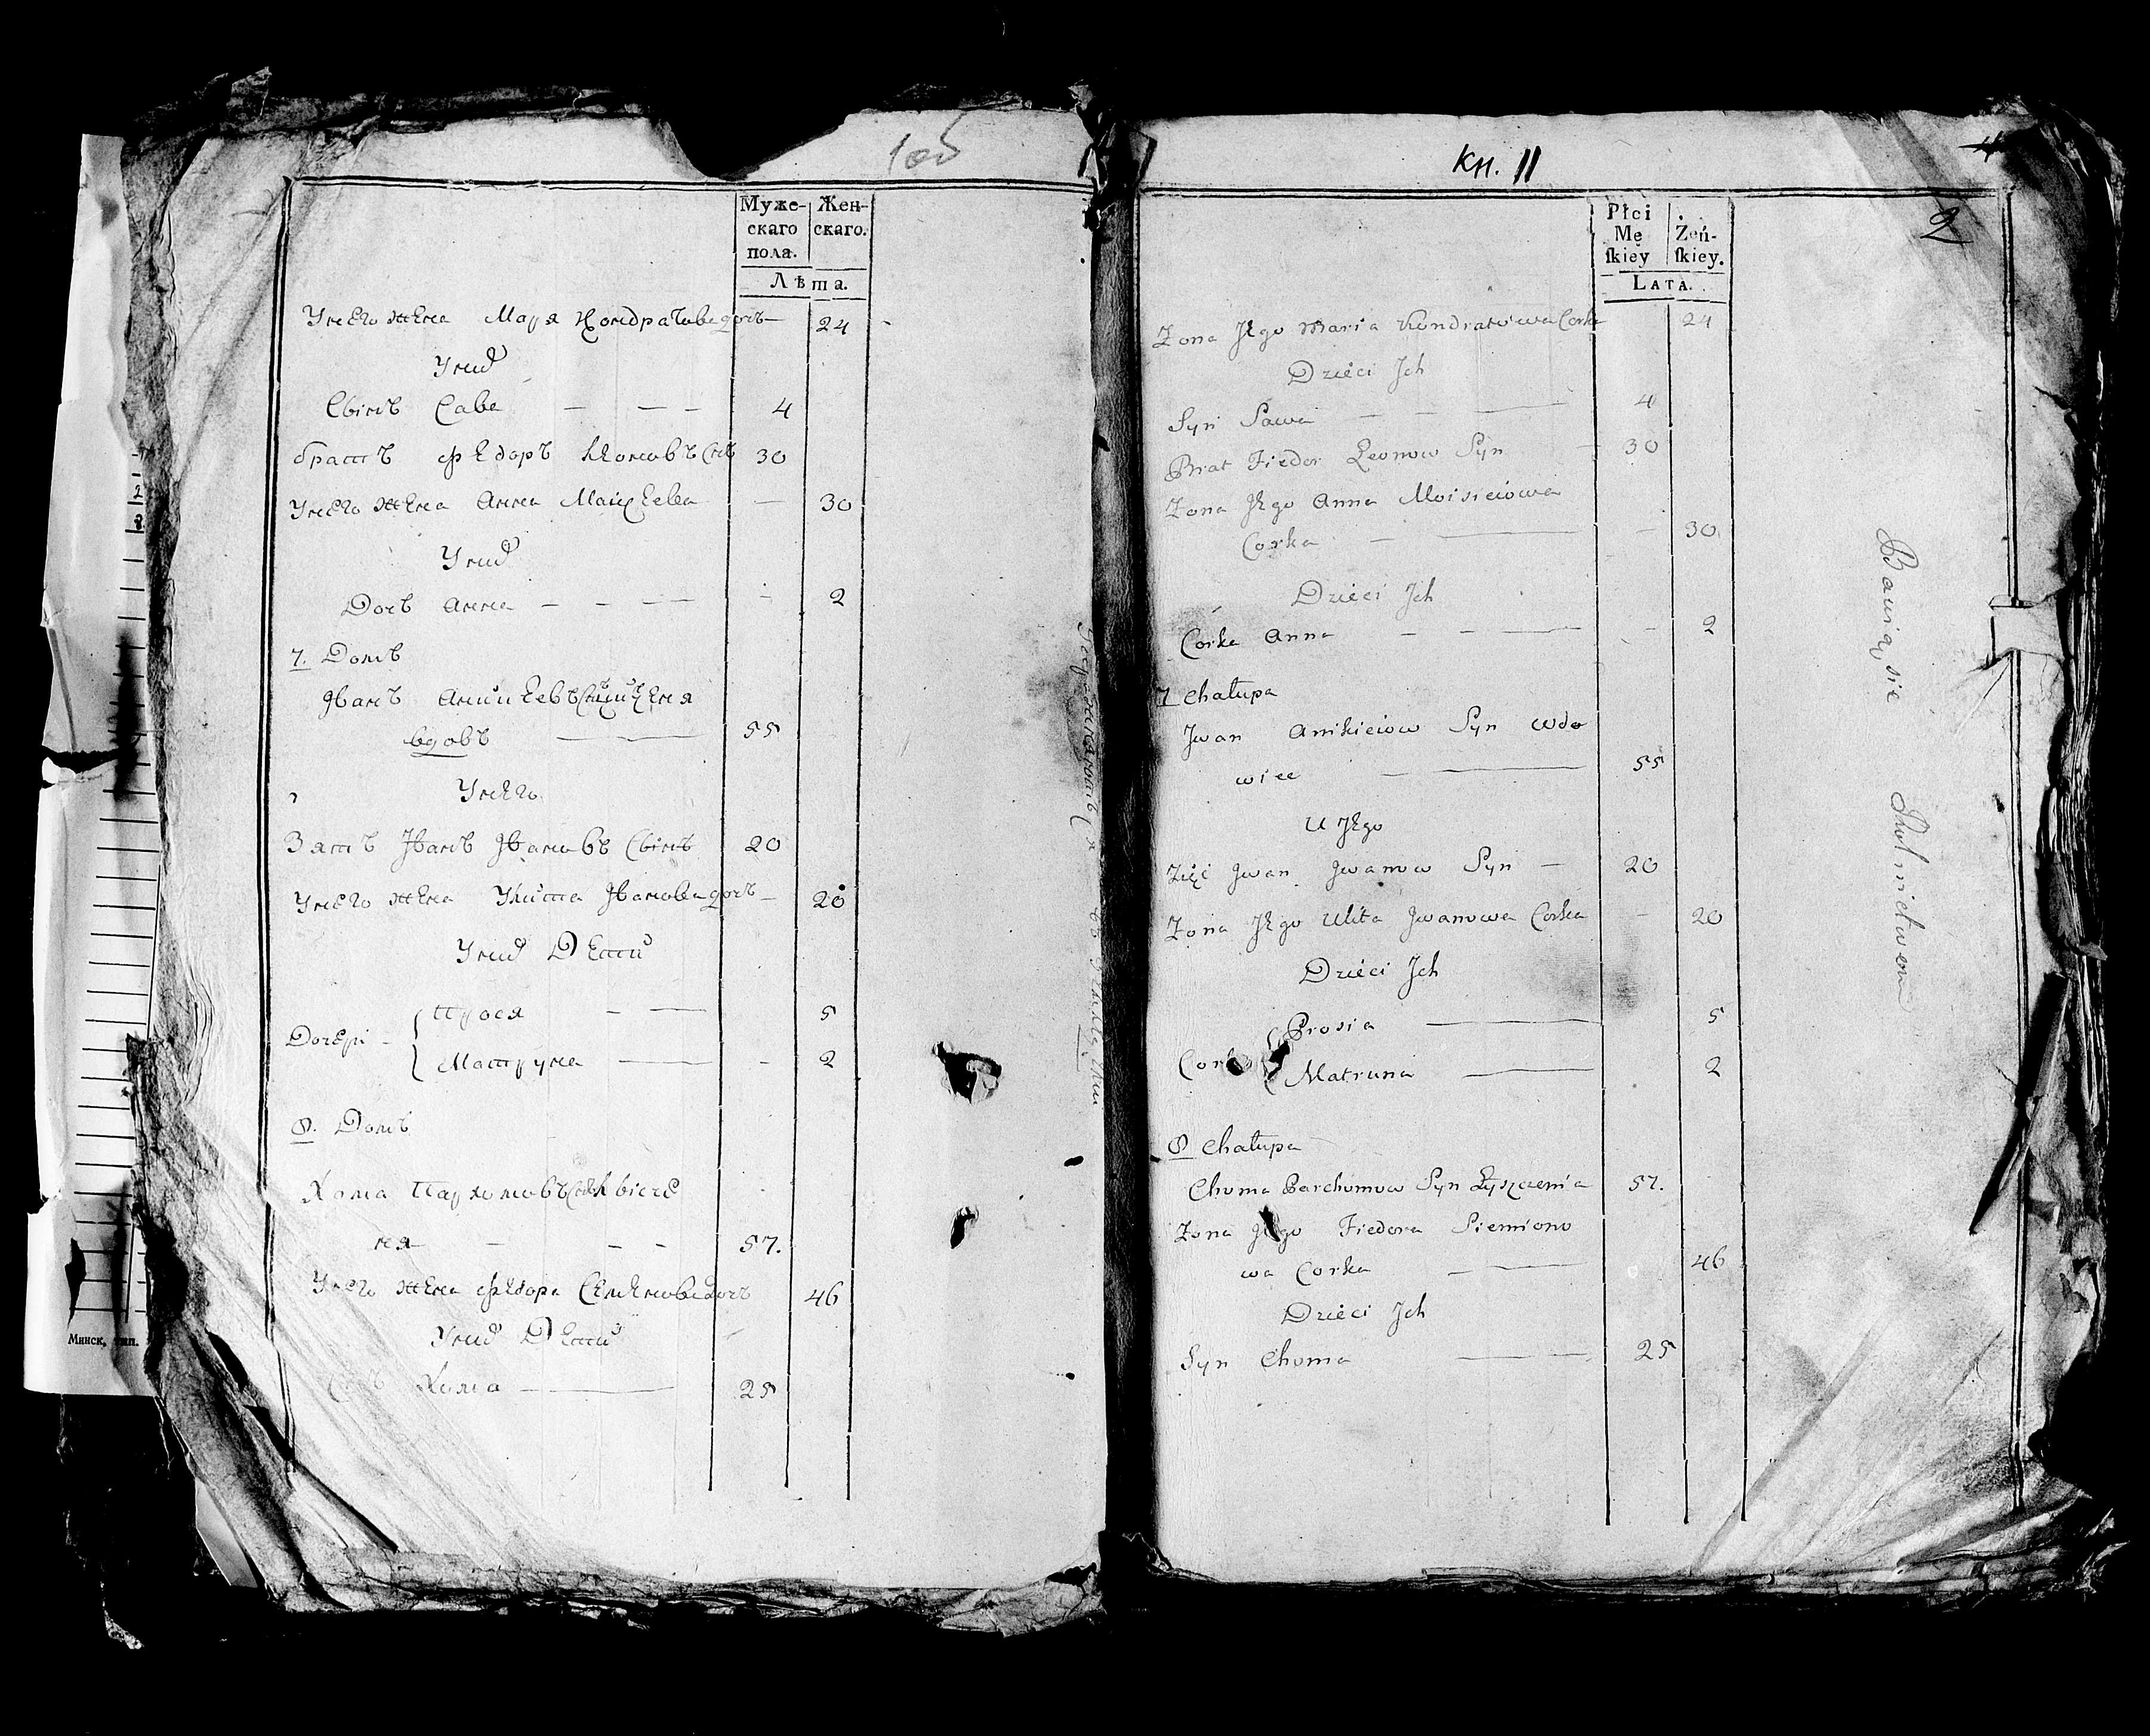 105
Муже-
скаго
пола.
Жен-
скаго.
Лѣта.
Унего жена Маря Кондратова дочь — 24
Уних
Свинъ Сава — — — 4
братъ Федоръ Леоновъ Снъ 30
Унего жена Анна Маисеева — 30
Уних
Дочь Анна — — — — 2
7. Домъ
Иванъ Аникеевъ
вдовъ — 55
Унего
Зять Иванъ Ивановъ Синъ 20
Унего жена Улита Иванова дочь — 20
Уних Дети
Дочери - Прося — — 5
Матруна — - 2
8. Домъ
Хома Пархомовъ
ня — — — 57.
Унего жена Федора Семенова дочь 46
Уних Дети
Снъ Хома — 25
Минск, тип.
Кн. 11
2
Płci
Mę
skiey
Żeń-
skiey.
LATA.
Zona Jego Maria Kondratowa Corka 24
Dzieci Jch
Syn Sawa — — — 4
Brat Fiedor Leonow Syn — 30
Zona Jego Anna Moisieiowa
Corka — — — 30
Dzieci Jch
Corka Anna — — — — 2
7 Chałupa
Jwan Anikieiow Syn Wdo
wiec — — 55
U Jego
Zięć Jwan Jwanow Syn — 20
Zona Jego Ulita Jwanowa Corka — 20
Dzieci Jch
Prosia — 5
Matruna — 2
8 Chałupa
Choma Parchomow Syn Łyszczenia 57.
Zona Jego Fiedora Siemiono
wa Corka — — 46
Dzieci Jch
Syn Choma — 25
Bawią się Rolnictwem